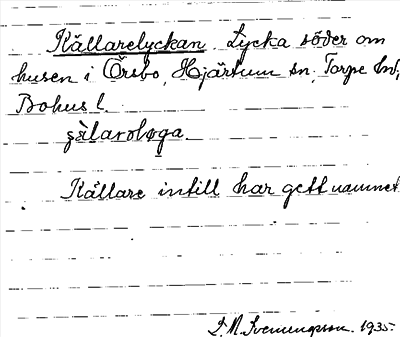 Källarelyckan. Lycka söder om
husen i Örsbo, Hjärtum sn, Torpe hd,
Bohus l.
Källare intill har gett namnet
1935.